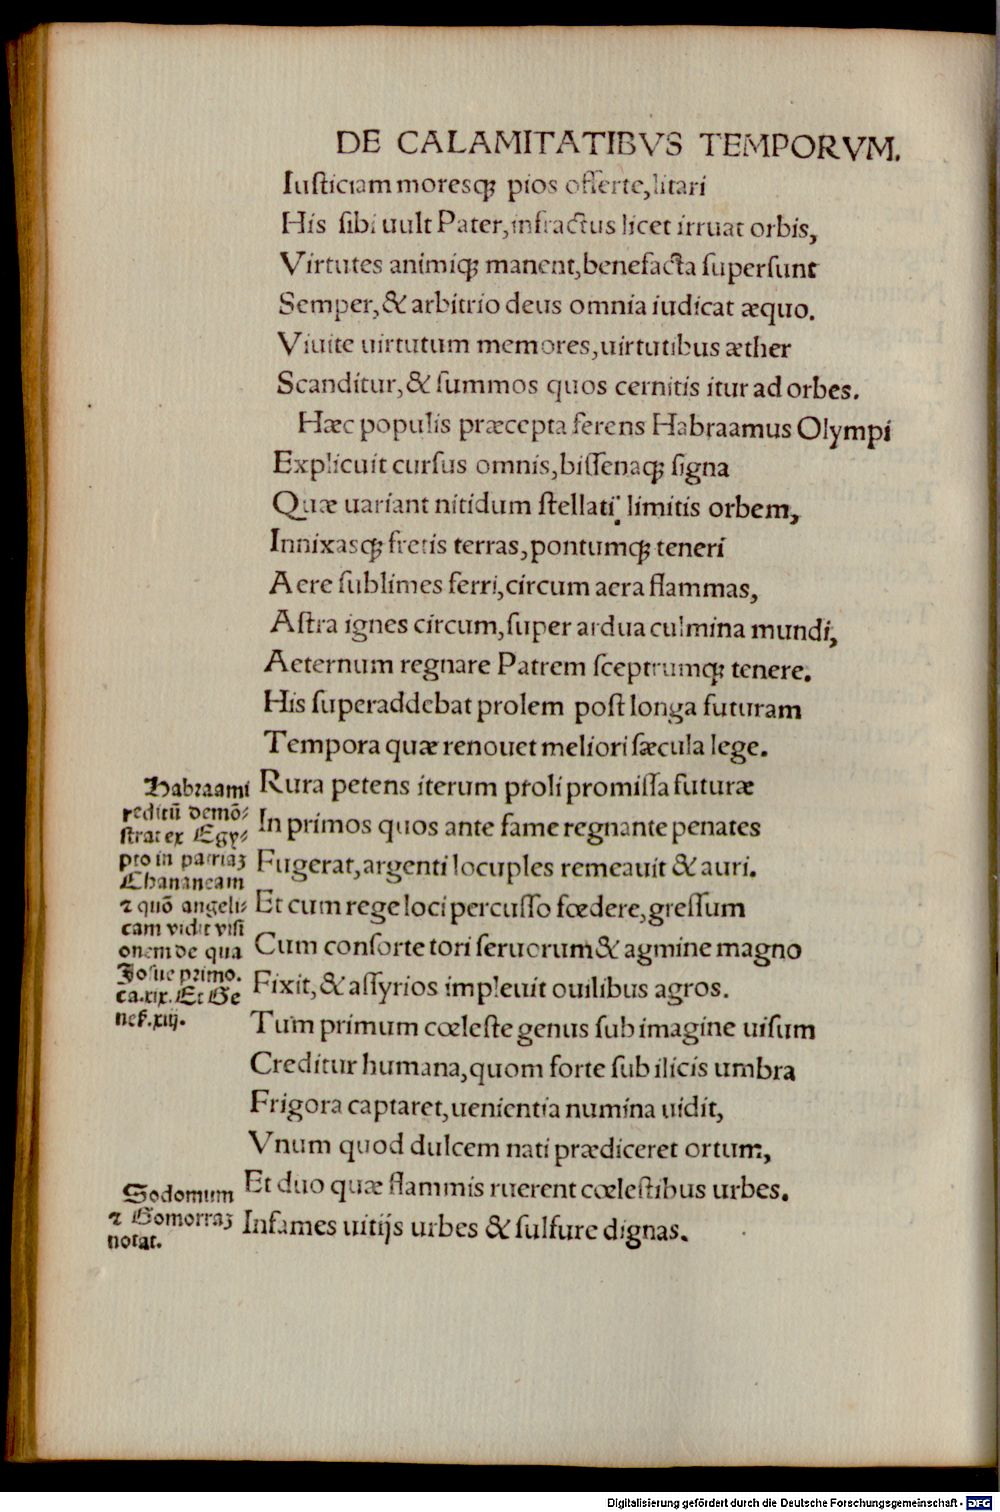 DE CALAMITATIBVS TEMPORVM.
Iuſticiam moresq; pios offerte, litari
His ſibi uult Pater, infractus licet irruat orbis,
Virtutes animiq; manent, benefacta ſuperſunt
Semper, & arbitrio deus omnia iudicat æquo.
Viuite uirtutum memores, uirtutibus æther
Scanditur, & ſummos quos cernitis itur ad orbes.
Hæc populis præcepta ferens Habraamus Olympi
Explicuit curſus omnis, biſſenaq; ſigna
Quæ uariant nitidum ſtellati limitis orbem,
Innixasq; fretis terras, pontumq; teneri
Aere ſublimes ferri, circum aera flammas,
Aſtra ignes circum, ſuper ardua culmina mundi,
Aeternum regnare Patrem ſceptrumq; tenere.
His ſuperaddebat prolem poſt longa futuram
Tempora quæ renouet meliori ſæcula lege.
Rura petens iterum proli promiſſa futuræ
In primos quos ante fame regnante penates
Fugerat, argenti locuples remeauit & auri.
Et cum rege loci percuſſo fœdere, greſſum
Cum conſorte tori ſeruorum & agmine magno
Fixit, & aſſyrios impleuit ouilibus agros.
Tum primum cœleſte genus ſub imagine uiſum
Creditur humana, quom forte ſub ilicis umbra
Frigora captaret, uenientia numina uidit,
Vnum quod dulcem nati prædiceret ortum,
Et duo quæ flammis ruerent cœleſtibus urbes.
Infames uitijs urbes & ſulfure dignas.
Habraami
reditū demō⸗
ſtrat ex Egy⸗
pto in patriaꝫ
Chananeam
⁊ quō angeli⸗
cam vidit viſi
onem de qua
Joſue primo.
ca.xix. Et Ge
neſ.xiij.
Sodomum
⁊ Gomorraꝫ
notat.
Digitalisierung gefördert durch die Deutsche Forschungsgemeinschaft - DFG